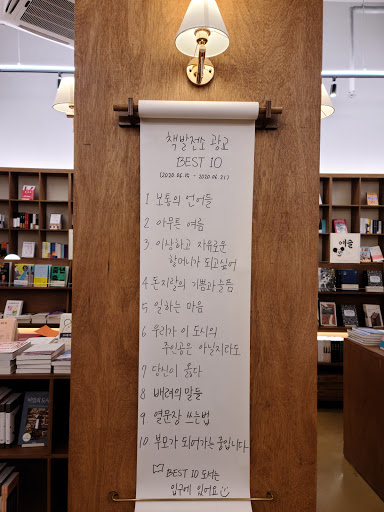 책발전소 광교
BEST 10
(2020.06.15 - 2020.06.21)
1 보통의 언어들
2 아무튼 여름
3 이상하고 자유로운
할머니가 되고싶어
4 돈지랄의 기쁨과 슬픔
5 일하는 마음
6 우리가 이 도시의
주인공은 아닐지라도
7 당신이 옳다
8 배려의 말들
9 열문장 쓰는법
10 부모가 되어가는 중입니다
BEST 10 도서는
입구에 있어요
예술